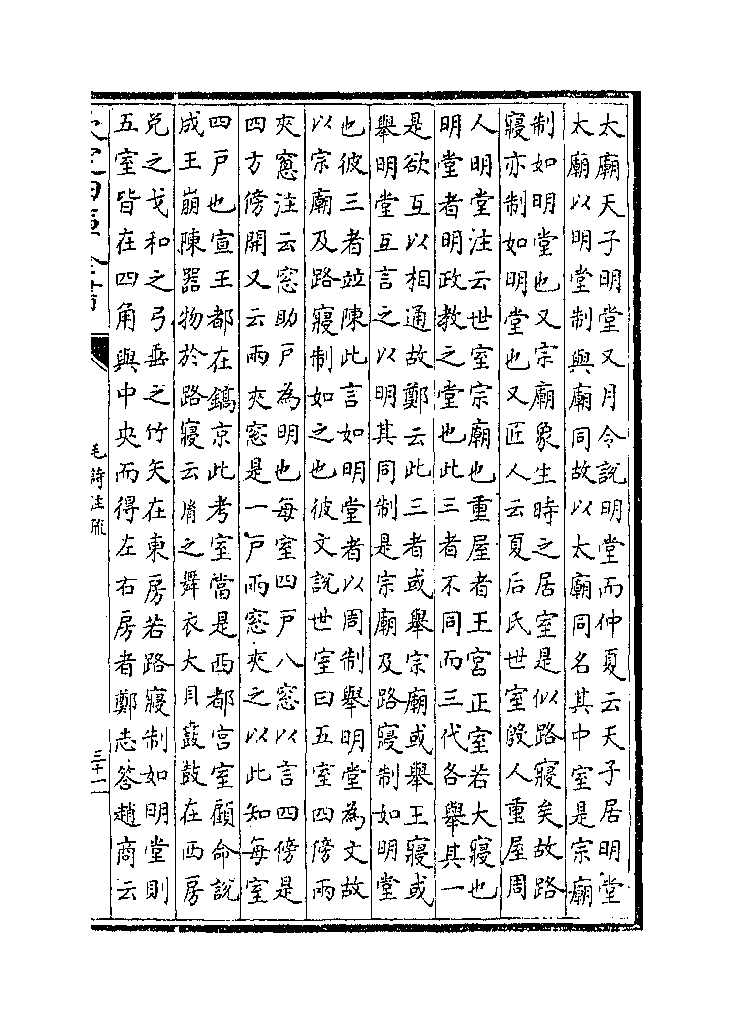 太廟天子明堂又月令說明堂而仲夏云天子居明堂
太廟以明堂制與廟同故以太廟同名其中室是宗廟
制如明堂也又宗廟象生時之居室是似路寢矣故路
寢亦制如明堂也又匠人云夏后氏世室殷人重屋周
人明堂注云世室宗廟也重屋者王宮正室若大寢也
明堂者明政教之堂也此三者不同而三代各舉其一
是欲互以相通故鄭云此三者或舉宗廟或舉王寢或
舉明堂互言之以明其同制是宗廟及路寢制如明堂
也彼三者竝陳此言如明堂者以周制舉明堂為文故
以宗廟及路寢制如之也彼文說世室曰五室四傍兩
夾窻注云窓助戶為明也每室四戶八窓以言四傍是
四方傍開又云兩夾窓是一戶兩窓夾之以此知每室
四戶也宣王都在鎬京此考室當是西都宮室顧命說
成王崩陳器物於路寢云㣧之舞衣大貝鼖鼓在西房
兊之戈和之弓垂之竹矢在東房若路寢制如明堂則
五室皆在四角與中央而得左右房者鄭志答趙商云
欽定四庫全書
毛詩注疏
三十一